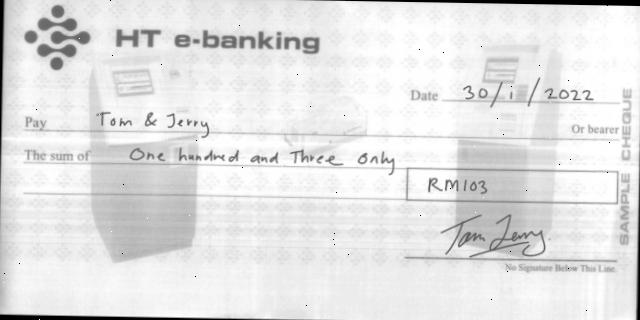 HT e-banking
Date 30/1/2022
Pay Tom & Jerry
Or bearer
The sum of One hundred and Three only
RM103
Tom Jerry
No Signature Below This Line.
SAMPLE CHEQUE